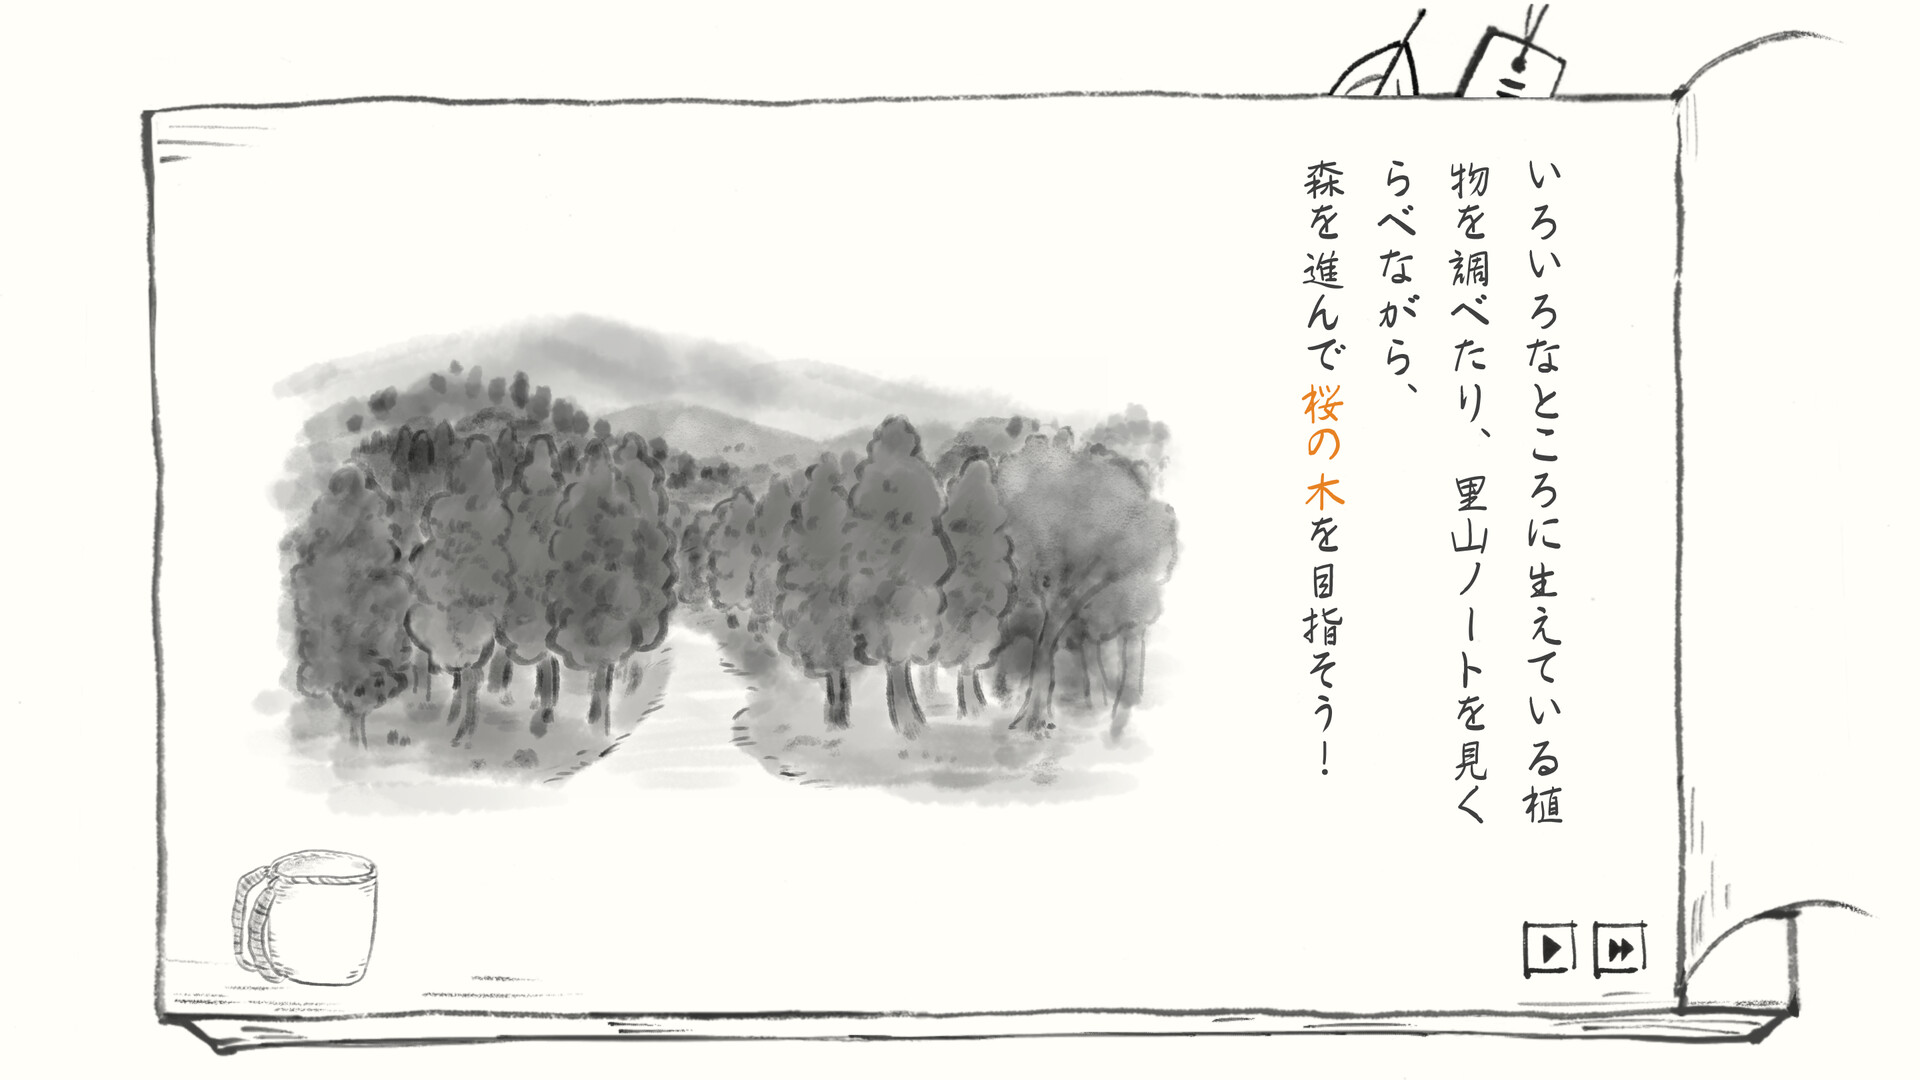 いろいろなところに生えている植
物を調べたり、里山ノートを見く
らべながら、
森を進んで桜の木を目指そう！